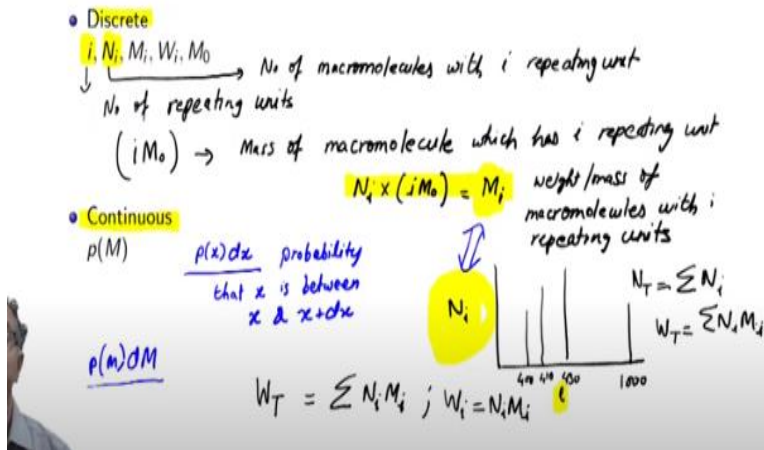 • Discrete
i, Nᵢ, Mᵢ, Wᵢ, M₀
No of macromolecules with i repeating unit
No of repeating units
(iM₀) → Mass of macromolecule which has i repeating unit
Nᵢ × (iM₀) = Mᵢ weight/mass of
macromolecules with i
repeating units
• Continuous
p(M)
p(x)dx probability
that x is between
x & x+dx
p(m)dM
Nᵢ
N_T = ΣNᵢ
W_T = ΣNᵢMᵢ
400 410 430 1000
i
W_T = ΣNᵢMᵢ ; Wᵢ = NᵢMᵢ